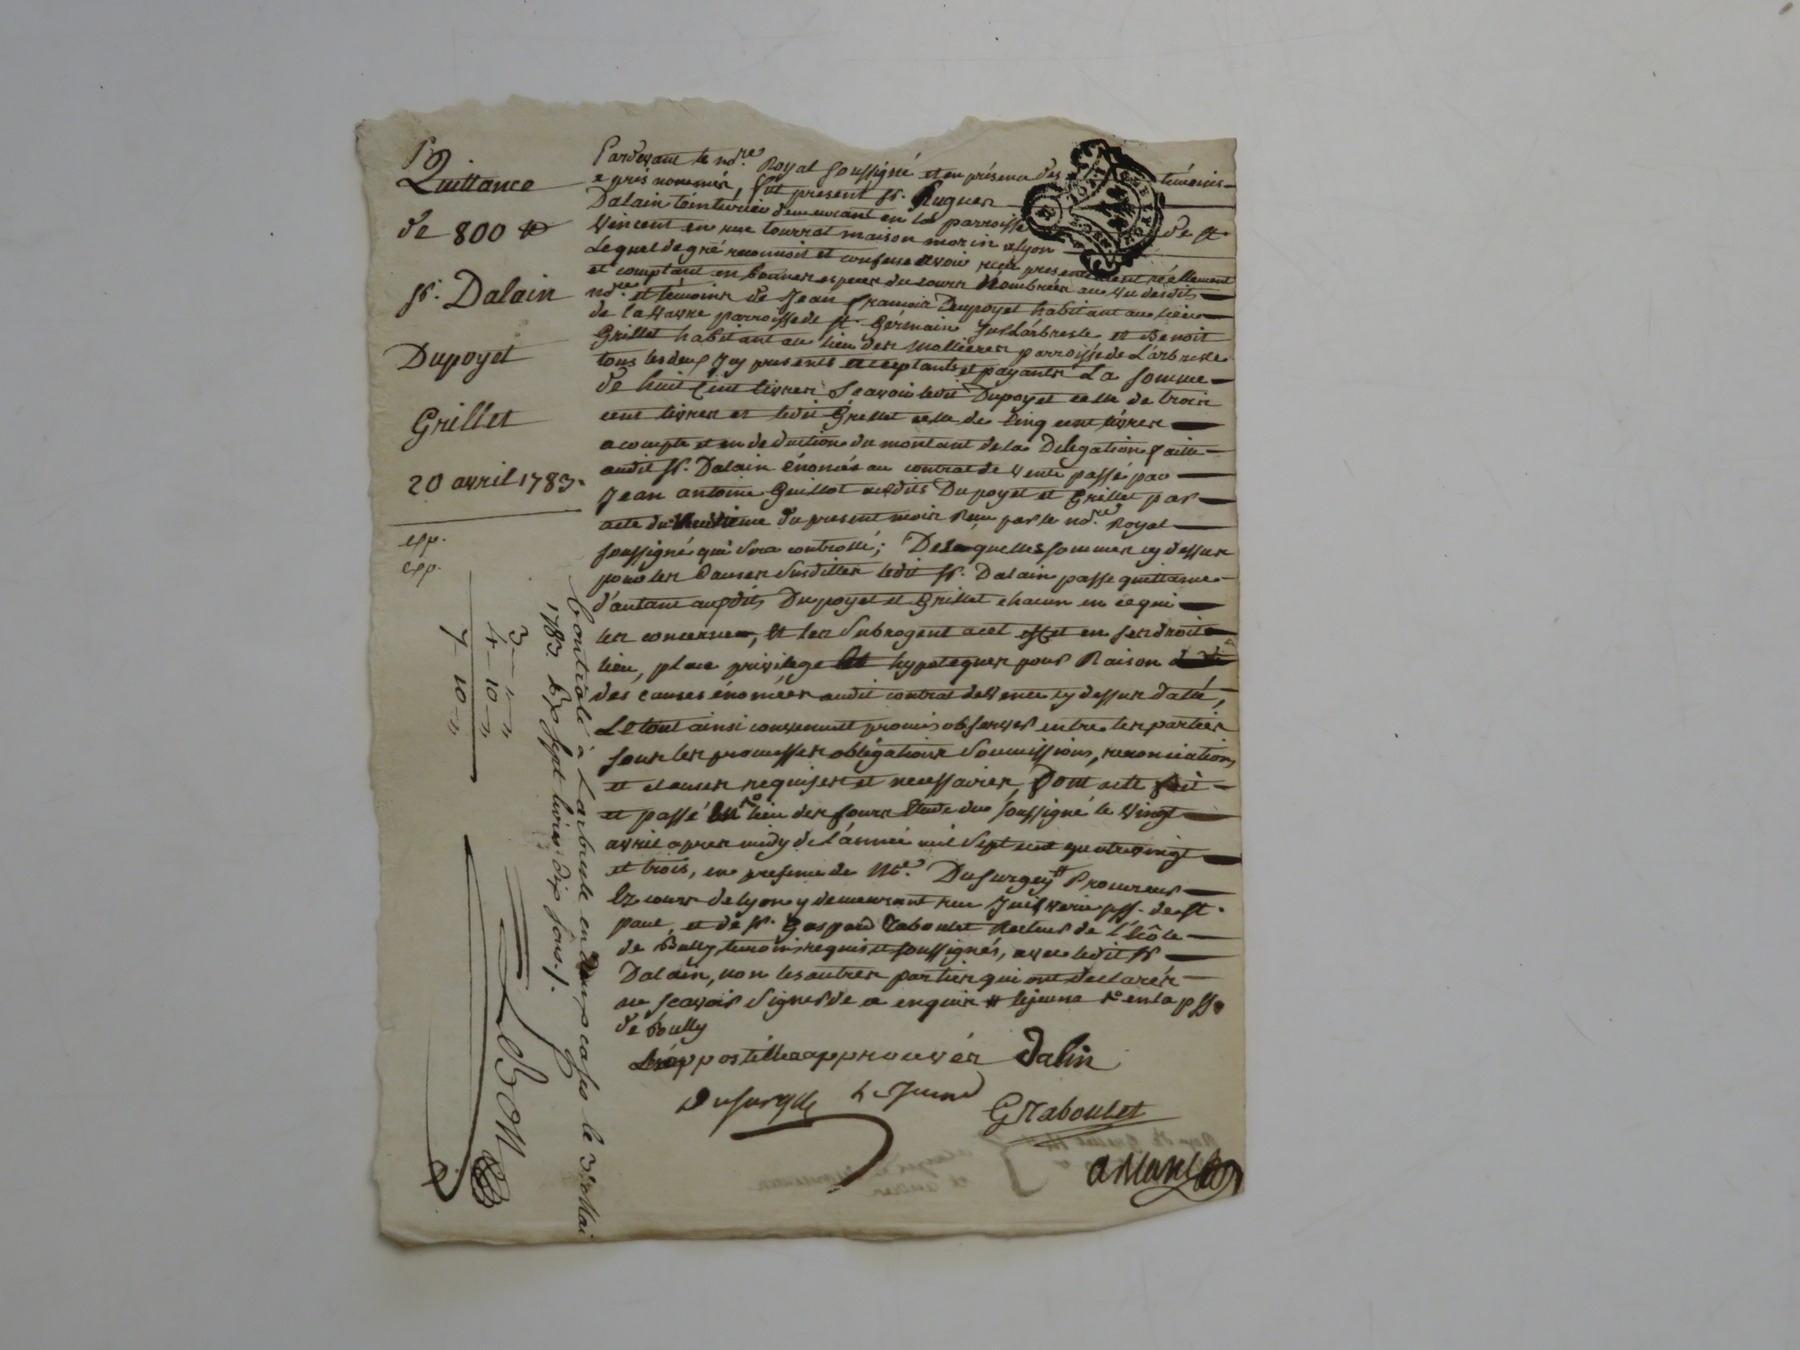 Quittance
de 800 ₶
sr. Dalain
Dupoyet
Grillet
20 avril 1783.
exp.
exp.
Pardevant le nore. Royal soussigné et en présence des témoins
après nommés, fut present sr. hugues
Dalain teinturier demeurant en la parroisse de st.
Vincent en rue tourret maison morin a lyon
Lequel de gré reconnoit et confesse avoir reçu presentement réellement
et comptant en bonnes especes du cours nombrées au vu desdits
nore. et témoins de Jean françois Dupoyet habitant au lieu
de la parroisse de st. Germain sur Larbresle et Benoit
Grillet habitant au lieu des mollieres parroisse de Larbresle
tous les deux icy presents acceptants et payants La somme
de huit Cent livres scavoir ledit Dupoyet celle de trois
cent livres et ledit Grillet celle de Cinq cent livres
a compte et en deduction du montant de la Delegation faitte
audit sr. Dalain énoncée au contrat de vente passé par
Jean antoine Guillot auxdits Dupoyet et Grillet par
acte du du present mois Reçu par le nore. Royal
soussigné qui sera controllé; Desquelles sommes cy dessus
pour les Causes susdittes ledit sr. Dalain passe quittance
d'autant auxdits Dupoyet et Grillet chacun en ce qui
les concerne, et les subrogent a cet effet en ses droits
lieu, place privilege et hypoteques pour Raison
des causes énoncées audit contrat de vence cy dessus datté,
Le tout ainsi convenu et promis observer entre les parties
sous les promesses obligations soumissions, renonciations
et clauses requises et necessaires, Dont acte fait
et passé lieu des fours Etude du soussigné le vingt
avril apres midy de L'année mil sept cent quatre vingt
et trois, en presence de Me. Dusurgey # Procureur
Ez cours de lyon y demeurant rue Juifverie pss. de st.
paul, et de sr. Gaspard Taboulet Recteur de l'
de Bully temoins requis et soussignés, avec ledit sr
Dalain, non les autres parties qui ont declarés
ne scavoir signer de ce enquis # lejeune en la pss.
de Bully
appostilles approuvés Dalin
Dusurgey Le Jeune
G Taboulet
Controlé à Larbresle en Deux cases le 3e. Mai
1783. Rx sept livres dix sous./.
3 — " — "
4 — 10 — "
7 — 10 — "